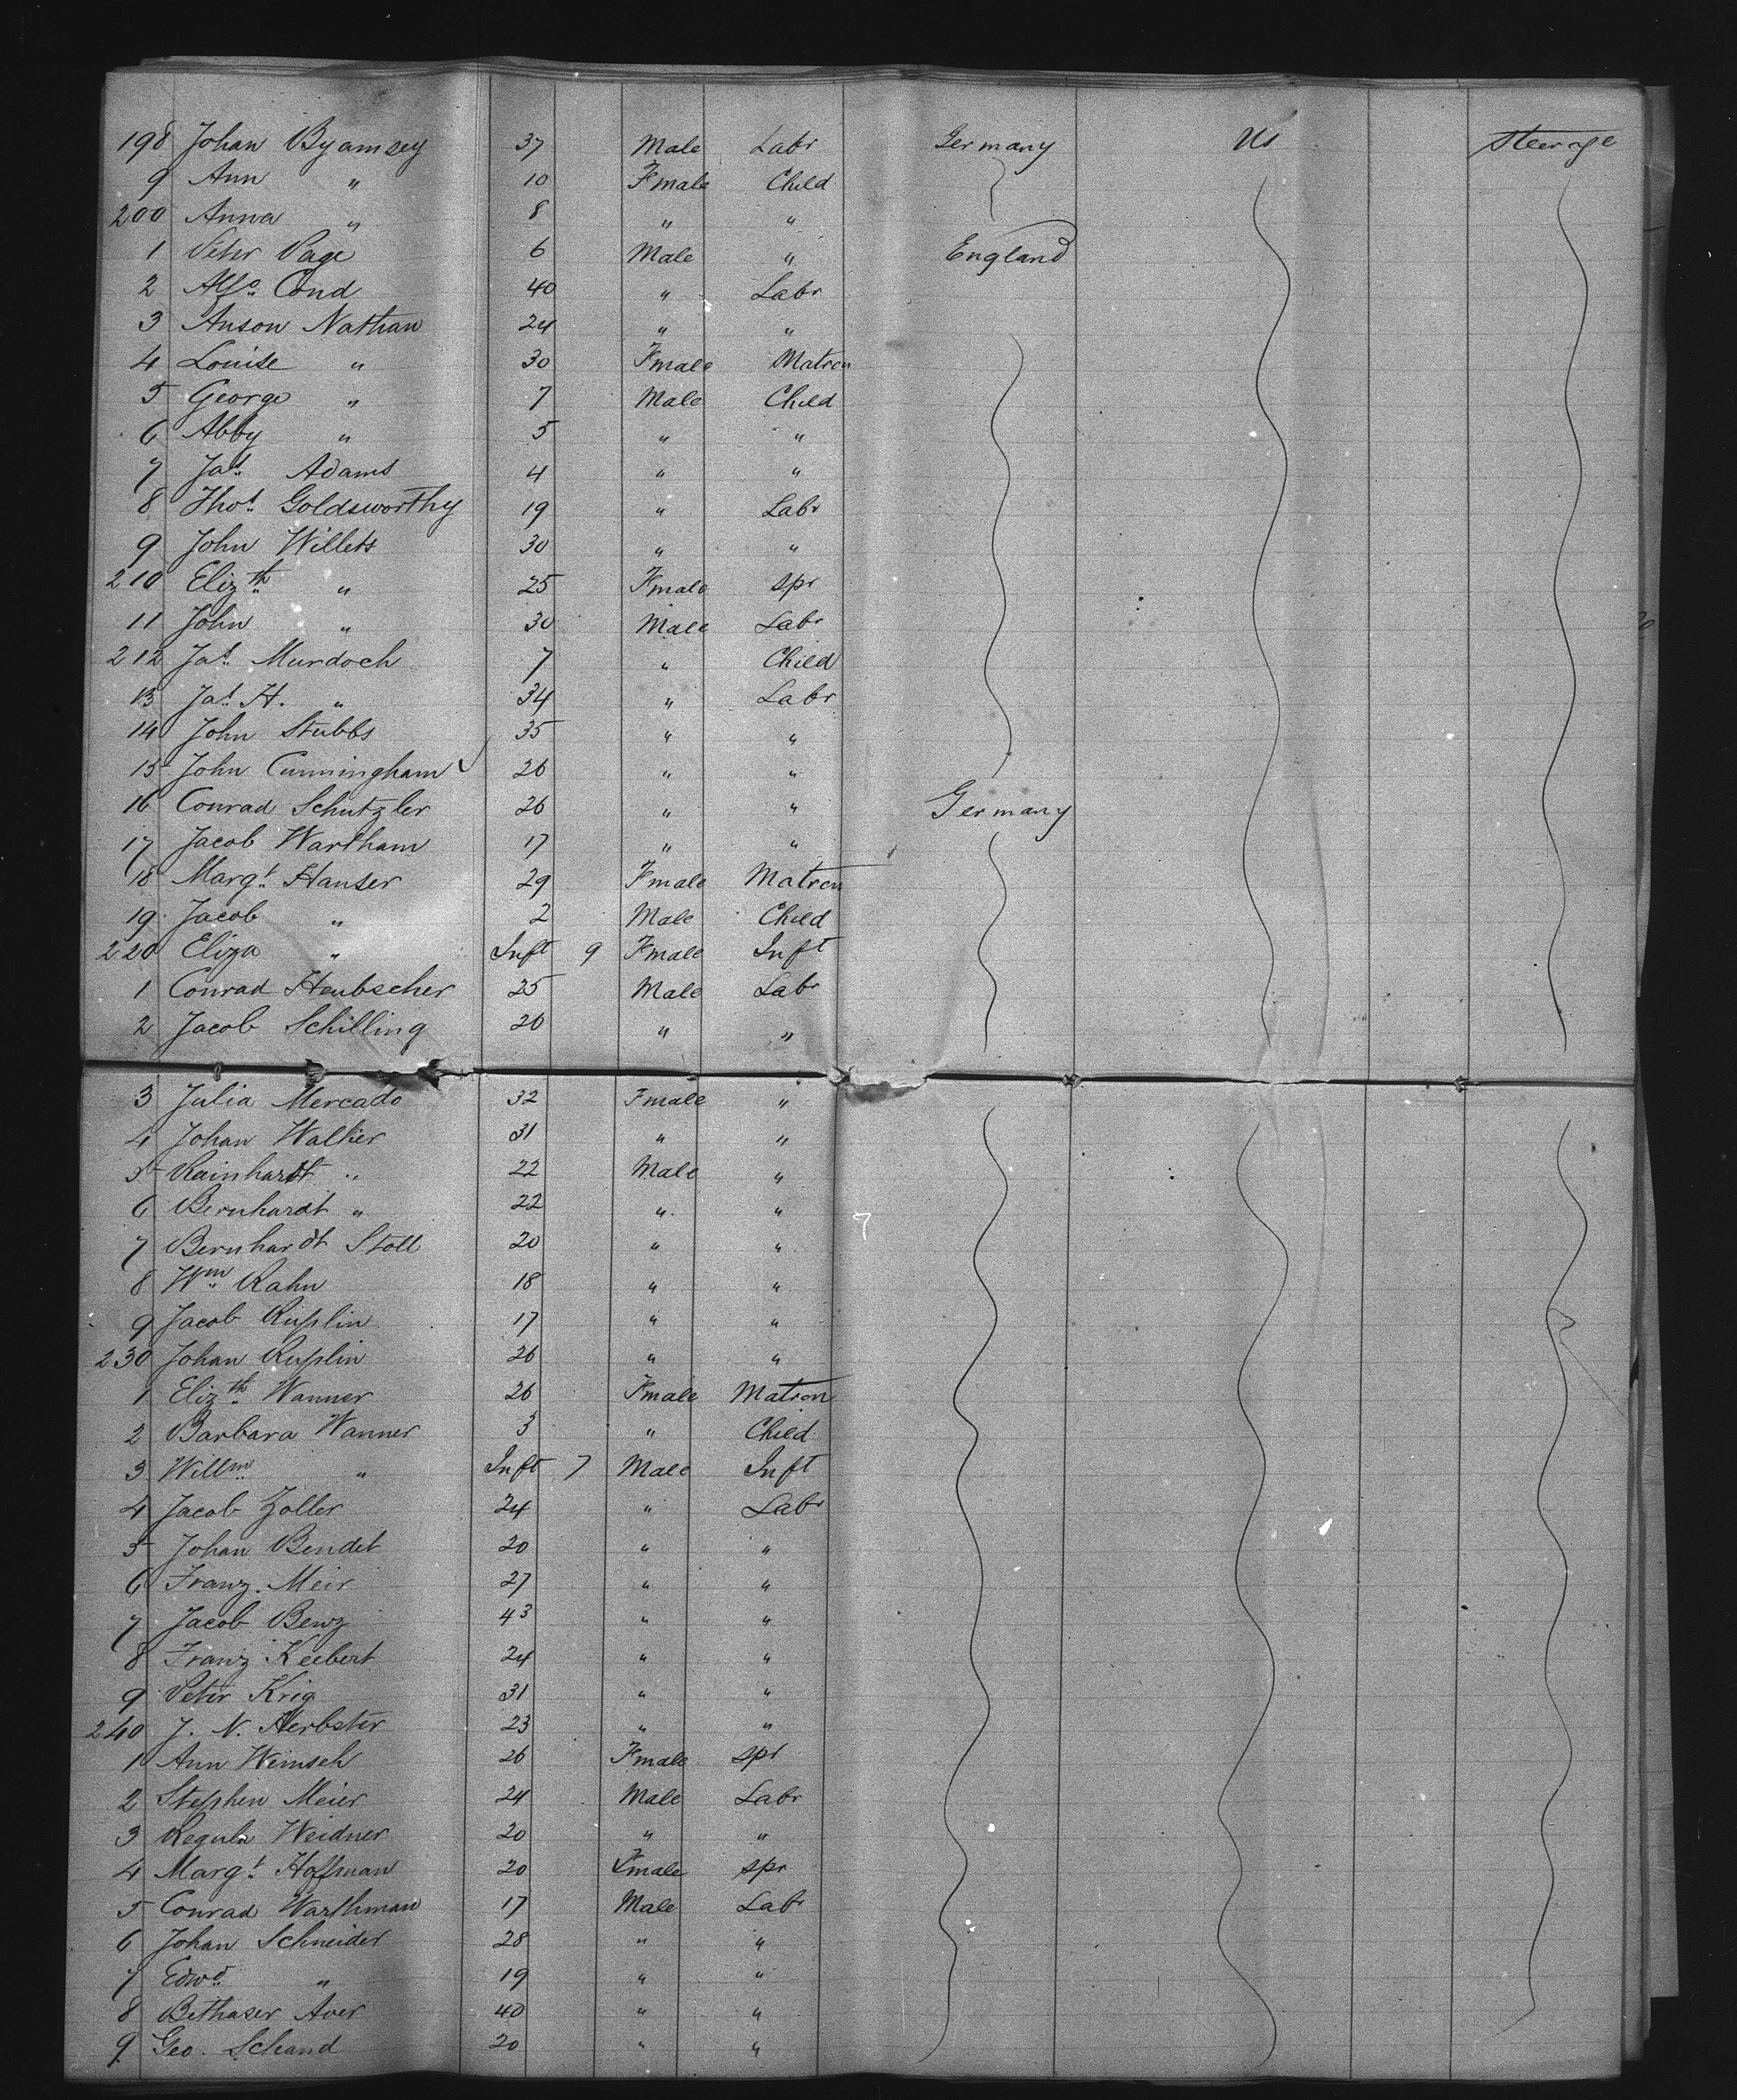 198 Johan Byamsey 37 Male Labr Germany Us Steerage
9 Ann " 10 Fmale Child
200 Anna " 8 " "
1 Peter Page 6 Male " England
2 Cond 40 " Labr
3 Anson Nathan 24 " "
4 Louise " 30 Fmale Matron
5 George " 7 Male Child
6 Abby " 5 " "
7 Jas. Adams 4 " "
8 Thos. Goldsworthy 19 " Labr
9 John Willets 30 " "
210 Elizth " 25 Fmale spr
11 John " 30 Male Labr
212 Jas. Murdoch 7 " Child
13 Jas. H. " 34 " Labr
14 John Stubbs 35 " "
15 John Cunningham 26 " "
16 Conrad Schutzler 26 " " Germany
17 Jacob Wartham 17 " "
18 Margt. Hauser 29 Fmale Matron
19 Jacob " 2 Male Child
220 Eliza " Inft 9 Fmale Inft
1 Conrad Heubscher 25 Male Labr
2 Jacob Schilling 26 " "
3 Julia Mercado 32 Fmale "
4 Johan Walker 31 " "
5 Rainhardt " 22 Male "
6 Bernhardt " 22 " "
7 Bernhardt Stoll 20 " "
8 Wm. Rahn 18 " "
9 Jacob Ruplin 17 " "
230 Johan Ruplin 26 " "
1 Elizth. Wanner 26 Fmale Matron
2 Barbara Wanner 3 " Child
3 Willm. " Inft 7 Male Inft
4 Jacob Zoller 24 " Labr
5 Johan Bendet 20 " "
6 Franz. Meir 27 " "
7 Jacob Benz 43 " "
8 Franz Keebert 24 " "
9 Peter Krig 31 " "
240 J. N. Herbster 23 " "
1 Ann Weinsch 26 Fmale spr
2 Stephen Meier 24 Male Labr
3 Regula Weidner 20 " "
4 Margt. Hoffman 20 Fmale spr
5 Conrad Warthman 17 Male Labr
6 Johan Schneider 28 " "
7 Edwd. " 19 " "
8 Bethaser Aver 40 " "
9 Geo. Schand 20 " "